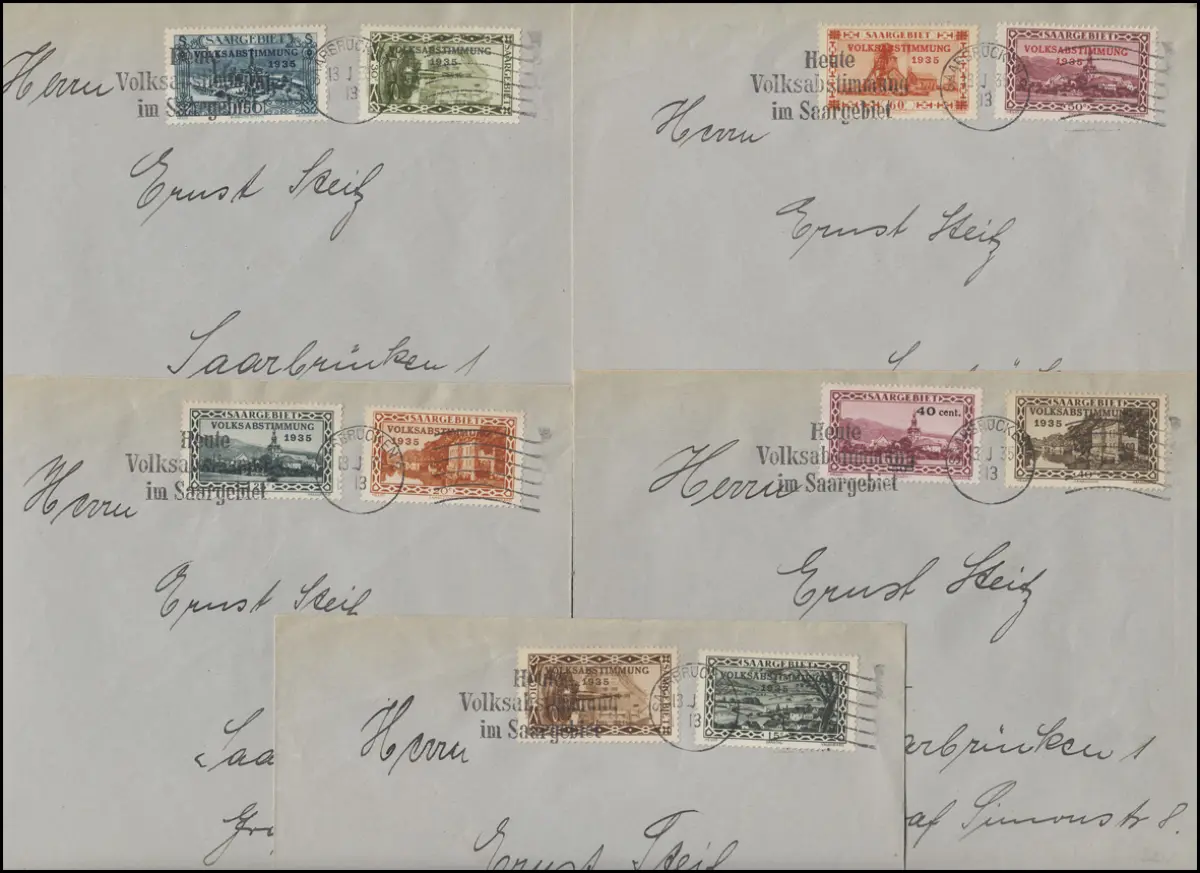 SAARGEBIET
VOLKSABSTIMMUNG
1935
VOLKSABSTIMMUNG
1935
SAARGEBIET
Heute
Volksabstimmung
im Saargebiet
13 J
13
Herrn
Ernst Steitz
Saarbrücken 1
SAARGEBIET
VOLKSABSTIMMUNG
1935
60
SAARGEBIET
VOLKSABSTIMMUNG
1935
50
Heute
Volksabstimmung
im Saargebiet
SAARBRÜCKEN
13 J 35
13
Herrn
Ernst Steitz
SAARGEBIET
VOLKSABSTIMMUNG
1935
SAARGEBIET
VOLKSABSTIMMUNG
1935
20
Heute
Volksabstimmung
im Saargebiet
SAARBRÜCKEN
13 J
13
Herrn
Ernst Steitz
Saa
Gr
40 cent.
SAARGEBIET
VOLKSABSTIMMUNG
1935
40
Heute
Volksabstimmung
im Saargebiet
SAARBRÜCKEN
13 J 35
13
Herrn
Ernst Steitz
arbrücken 1
af Simonstr 8.
VOLKSABSTIMMUNG
1935
SAARGEBIET
SAARGEBIET
VOLKSABSTIMMUNG
1935
15
Heute
Volksabstimmung
im Saargebiet
SAARBRÜCKEN
13 J
13
Herrn
Ernst Steitz